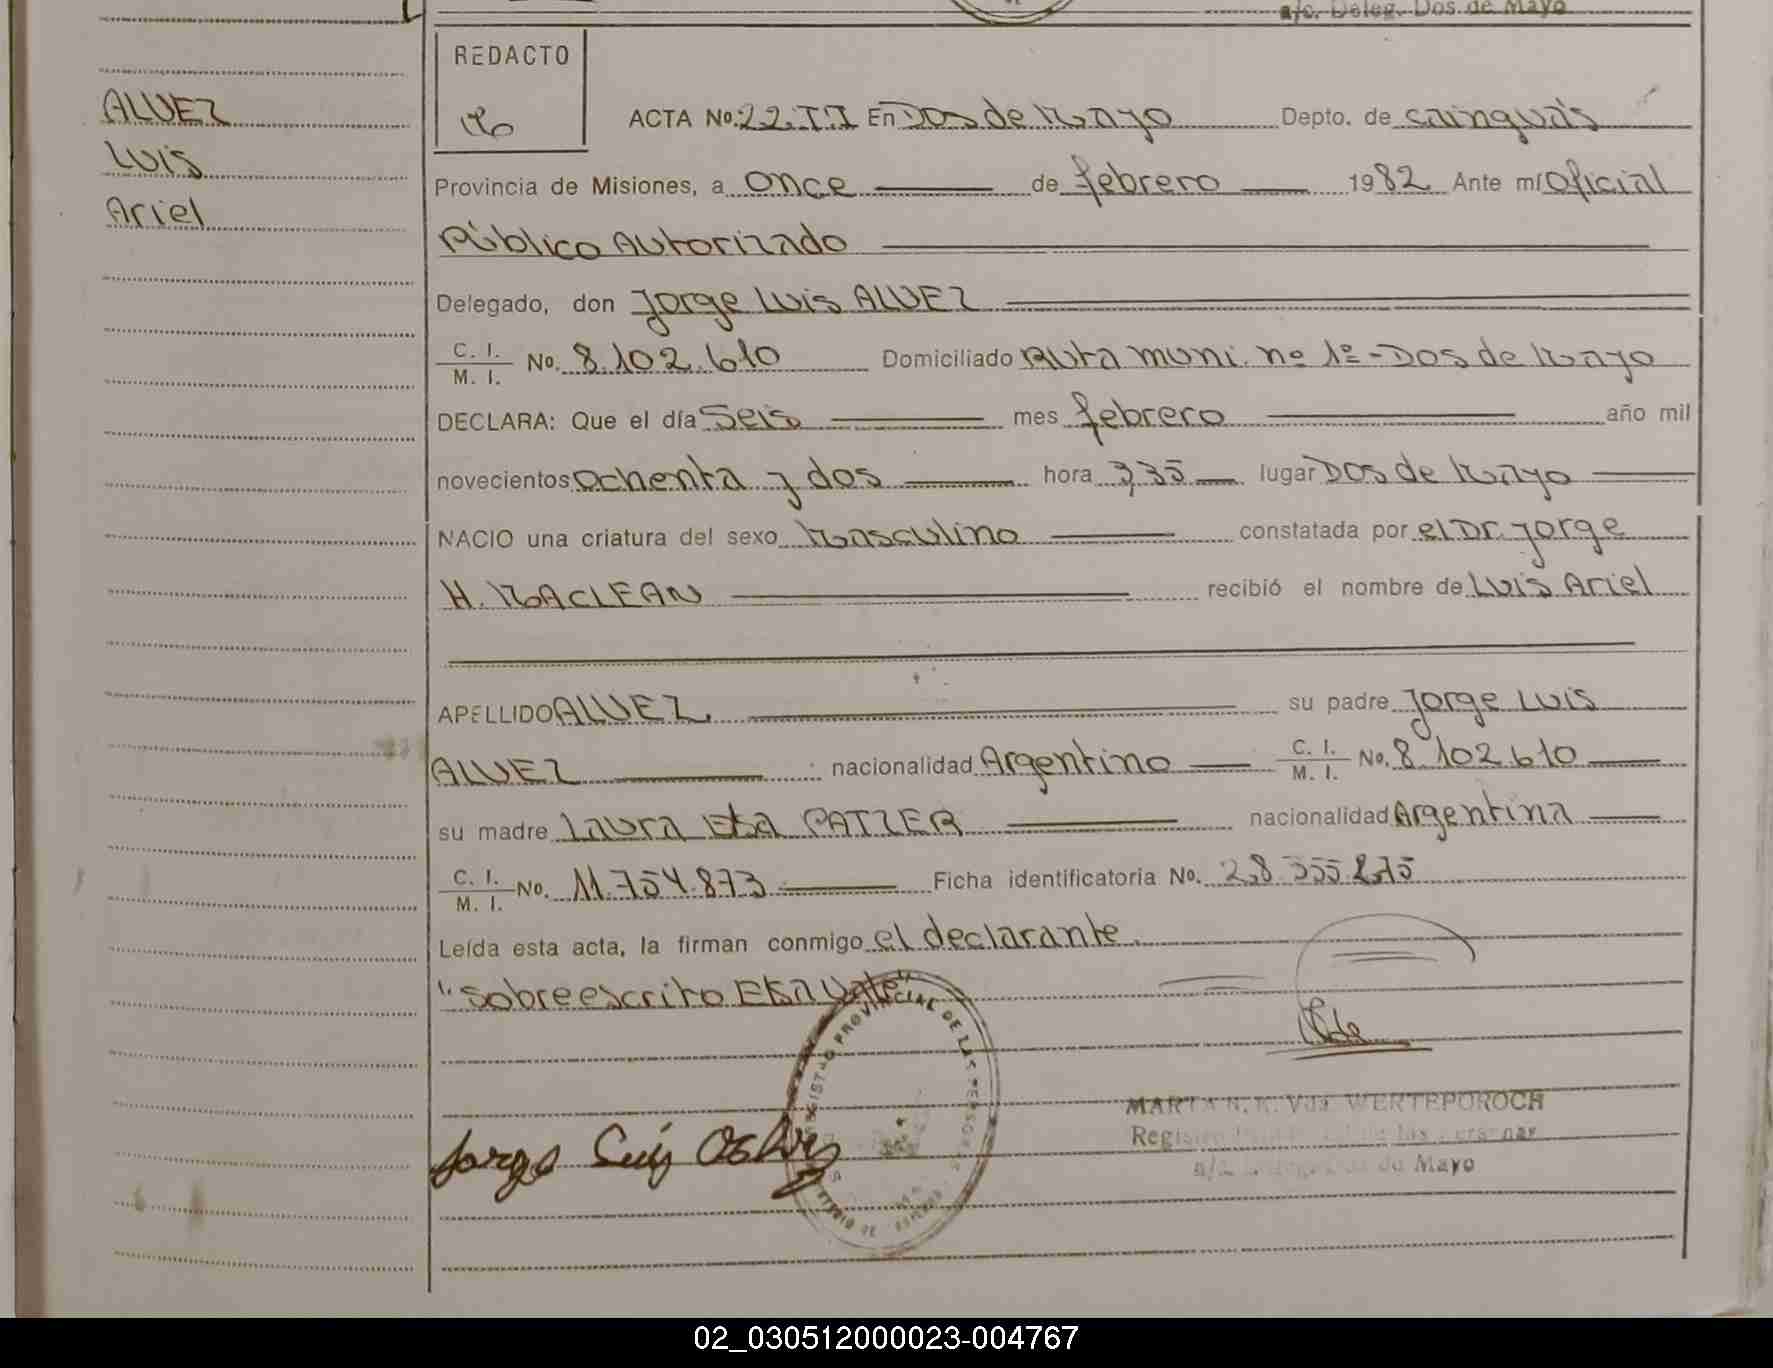 a/c. Deleg. Dos de Mayo
REDACTO
ALVEZ
LUIS
Ariel
ACTA No. 22. T.I En Dos de Mayo Depto. de cainguás
Provincia de Misiones, a once de febrero 1982 Ante mí Oficial
Público Autorizado
Delegado, don Jorge Luis ALVEZ
C. I. / M. I. No. 8.102.610 Domiciliado Ruta muni. nº 1º - Dos de Mayo
DECLARA: Que el día Seis mes febrero año mil
novecientos ochenta y dos hora 3,35 lugar Dos de Mayo
NACIO una criatura del sexo Masculino constatada por el Dr. Jorge
H. MACLEAN recibió el nombre de Luis Ariel
APELLIDO ALVEZ. su padre Jorge Luis
ALVEZ nacionalidad Argentino C. I. / M. I. No. 8.102.610
su madre Laura Elsa PATZER nacionalidad Argentina
C. I. / M. I. No. 11.754.873 Ficha identificatoria No.
Leída esta acta, la firman conmigo el declarante.
"Sobreescrito Elsa Vale"
REGISTRO PROVINCIAL DE LAS PERSONAS
MARTA N. K. Vda. WERTEPOROCH
Registro de las Personas
a/c. Deleg. Dos de Mayo
Jorge Luis
02_030512000023-004767